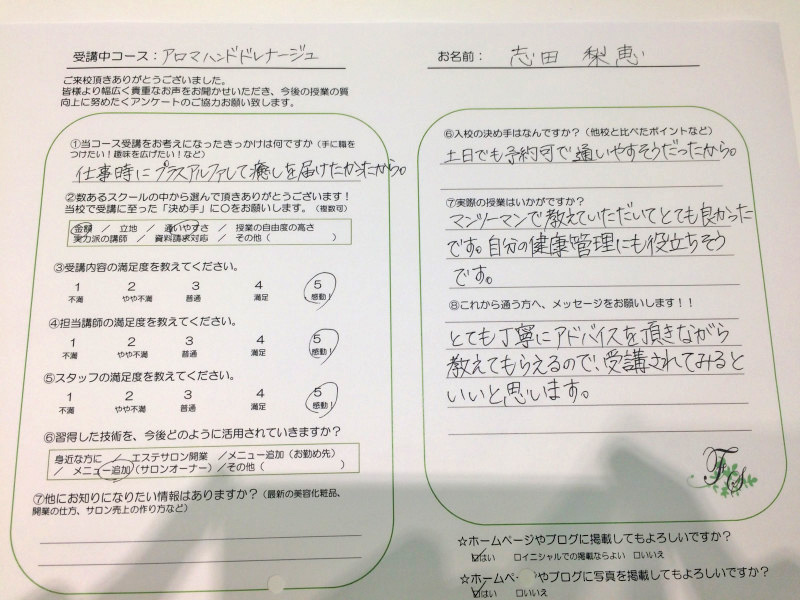 受講中コース：アロマハンドドレナージュ
ご来校頂きありがとうございました。
皆様より幅広く貴重なお声をお聞かせいただき、今後の授業の質
向上に努めたくアンケートのご協力お願い致します。
①当コース受講をお考えになったきっかけは何ですか（手に職を
つけたい！趣味を広げたい！など）
仕事時にプラスアルファして癒しを届けたかったから。
②数あるスクールの中から選んで頂きありがとうございます！
当校で受講に至った「決め手」に○をお願いします。（複数可）
金額 ／ 立地 ／ 通いやすさ ／ 授業の自由度の高さ
実力派の講師 ／ 資料請求対応 ／ その他（ ）
③受講内容の満足度を教えてください。
1 2 3 4 5
不満 やや不満 普通 満足 感動！
④担当講師の満足度を教えてください。
1 2 3 4 5
不満 やや不満 普通 満足 感動！
⑤スタッフの満足度を教えてください。
1 2 3 4 5
不満 やや不満 普通 満足 感動！
⑥習得した技術を、今後どのように活用されていきますか？
身近な方に ／ エステサロン開業 ／メニュー追加（お勤め先）
／ メニュー追加（サロンオーナー）／その他（ ）
⑦他にお知りになりたい情報はありますか？（最新の美容化粧品、
開業の仕方、サロン売上の作り方など）
お名前： 志田 梨恵
⑥入校の決め手はなんですか？（他校と比べたポイントなど）
土日でも予約可で通いやすそうだったから。
⑦実際の授業はいかがですか？
マンツーマンで教えていただいてとても良かった
です。自分の健康管理にも役立ちそう
です。
⑧これから通う方へ、メッセージをお願いします！！
とても丁寧にアドバイスを頂きながら
教えてもらえるので、受講されてみると
いいと思います。
FS
☆ホームページやブログに掲載してもよろしいですか？
☑はい □イニシャルでの掲載ならよい □いいえ
☆ホームペ やブログに写真を掲載してもよろしいですか？
☑はい □いいえ